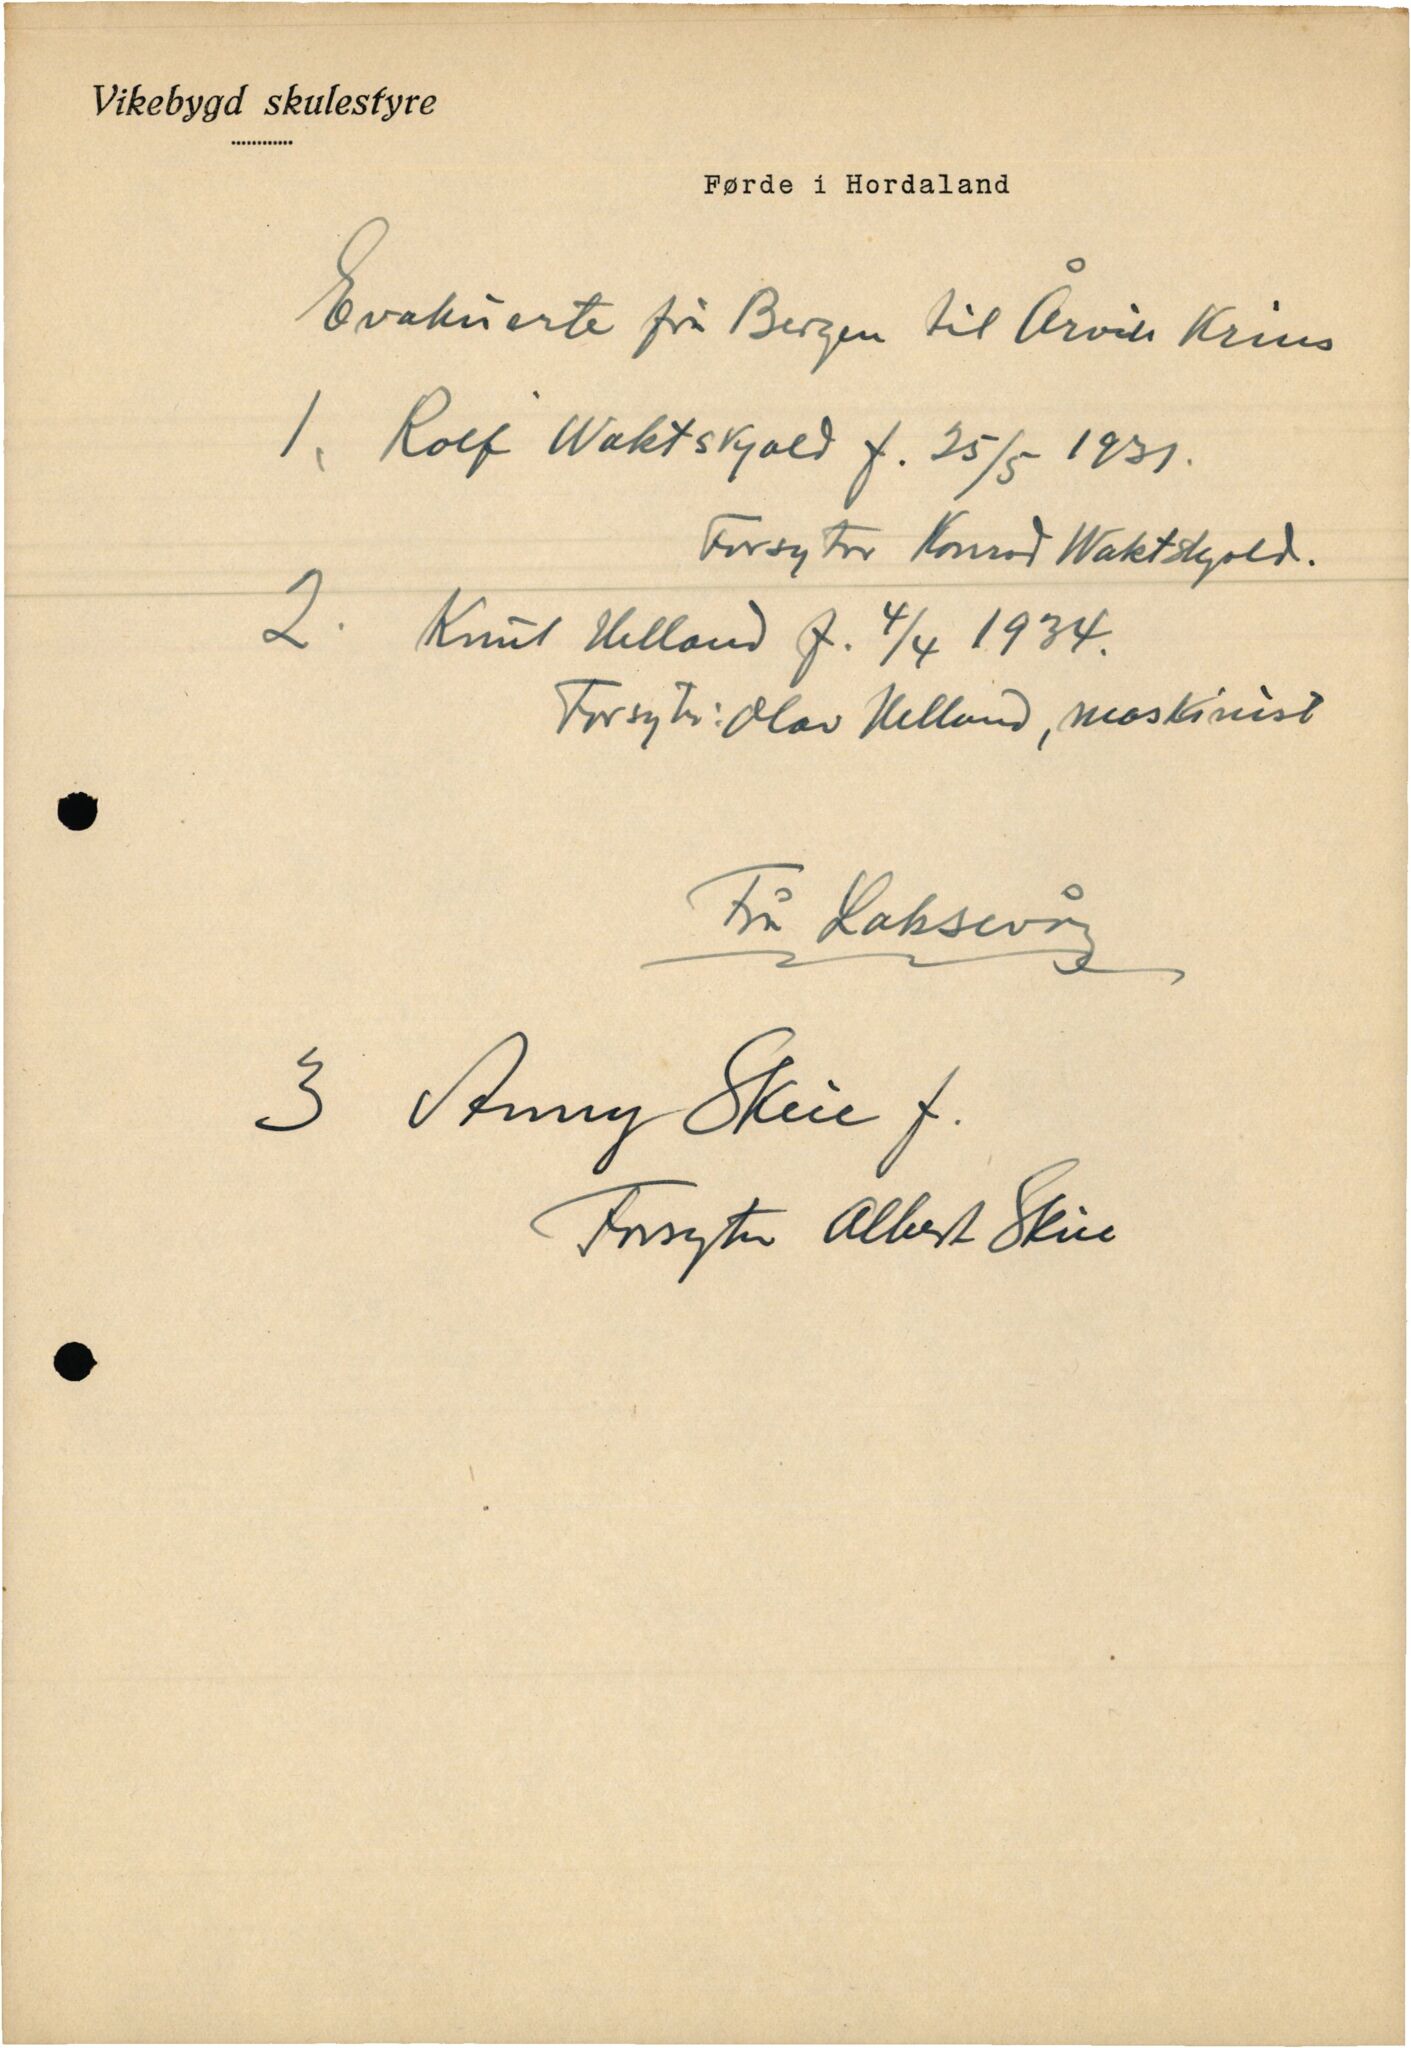 Vikebygd skulestyre
Førde i Hordaland
Evakuerte frå Bergen til Årvik Krins
1. Rolf Waktskjold f. 25/5 1931.
Forsytar Konrad Waktskjold.
2. Knut Helland f. 4/4 1934.
Forsytr: Olav Helland, maskinist
Frå Laksevåg
3 Anny Skeie f.
Forsytar Albert Skeie